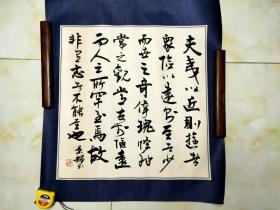 夫夷以近則遊者
眾險以遠則至者少
而世之奇偉瑰怪非
常之觀常在於險遠
而人之所罕至焉故
非有志者不能至也